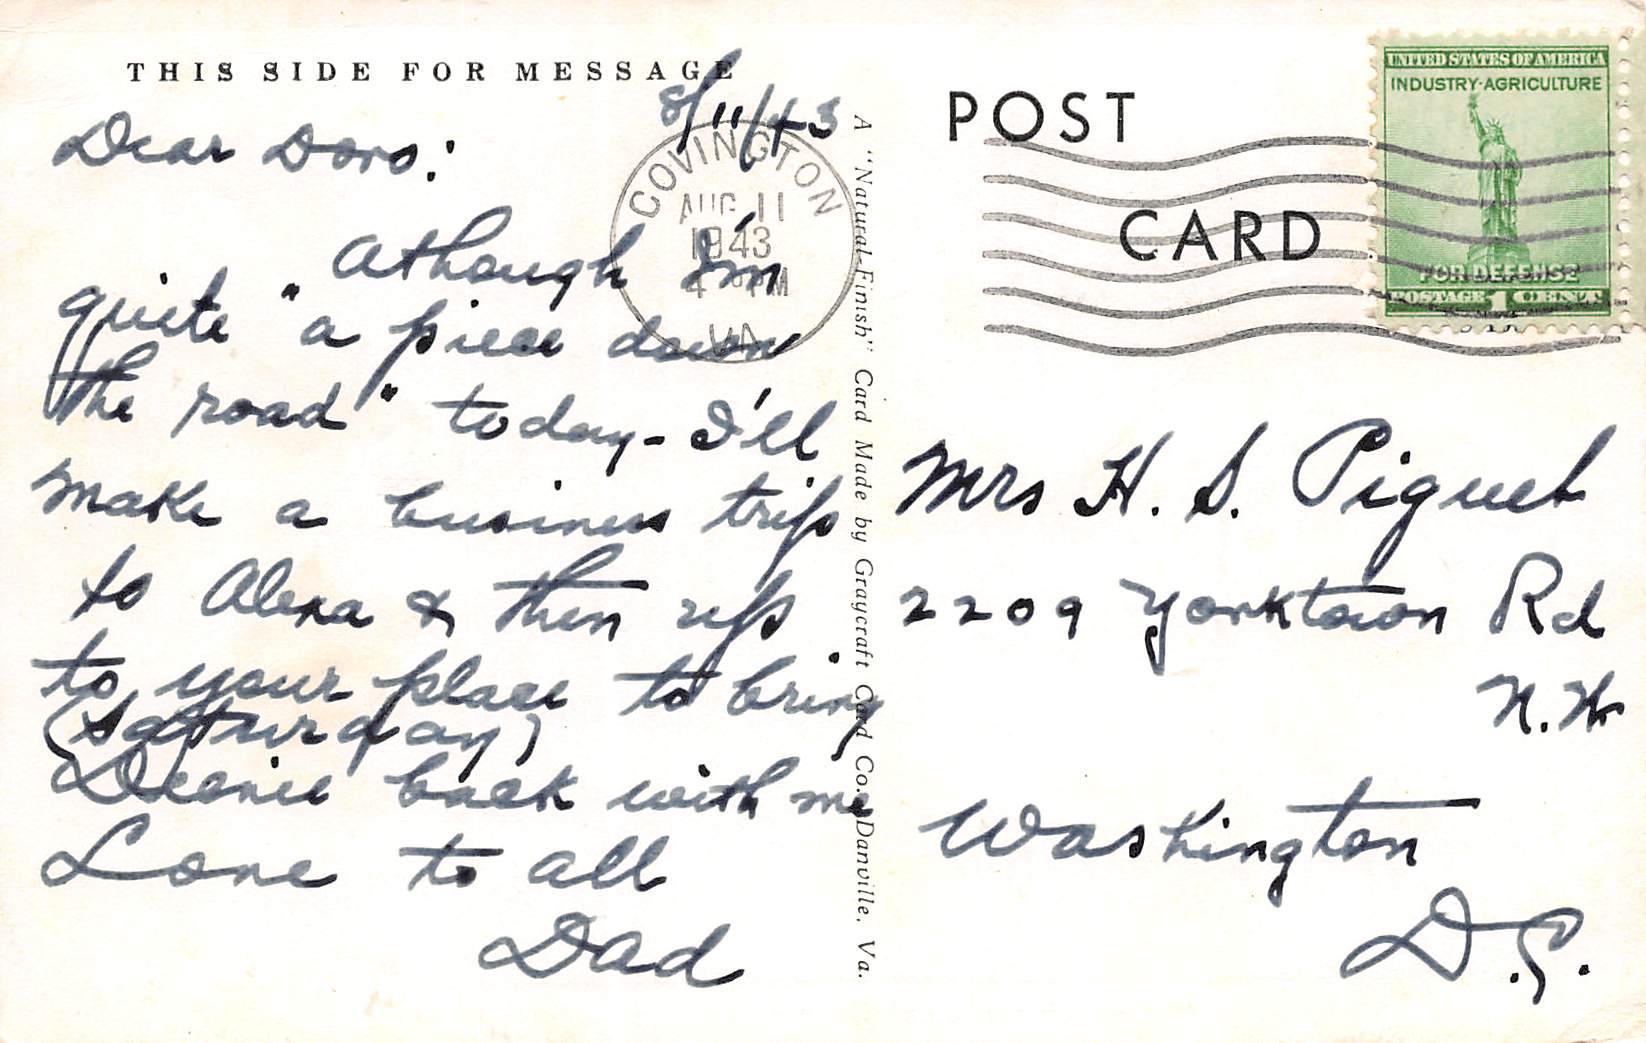 THIS SIDE FOR MESSAGE
8/11/43
Dear Doro:
Athough I'm
quiete "a piece down
the road" today - I'll
make a business trip
to Alexa & then up
to your place to bring
(saturday)
Deenie back with me
Love to all
Dad
COVINGTON
AUG 11
1943
4 PM
VA
A "Natural-Finish" Card Made by Graycraft Card Co., Danville, Va.
POST
CARD
UNITED STATES OF AMERICA
INDUSTRY·AGRICULTURE
FOR DEFENSE
POSTAGE 1 CENT
Mrs H. S. Piguet
2209 Yorktown Rd
N.W
Washington
D.C.